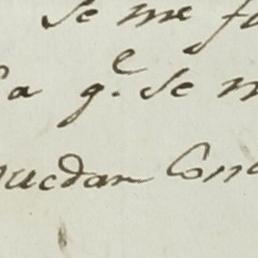 Se me
a q.e Se
quedan Con